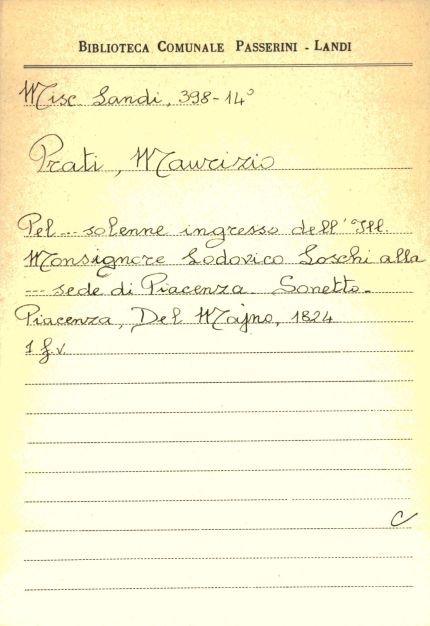 BIBLIOTECA COMUNALE PASSERINI - LANDI
Misc. Landi, 398-14°
Prati, Maurizio
Pel... solenne ingresso dell'Ill.
Monsignore Lodovico Loschi alla
... sede di Piacenza. Sonetto.
Piacenza, Del Majno, 1824
1 f.v.
C